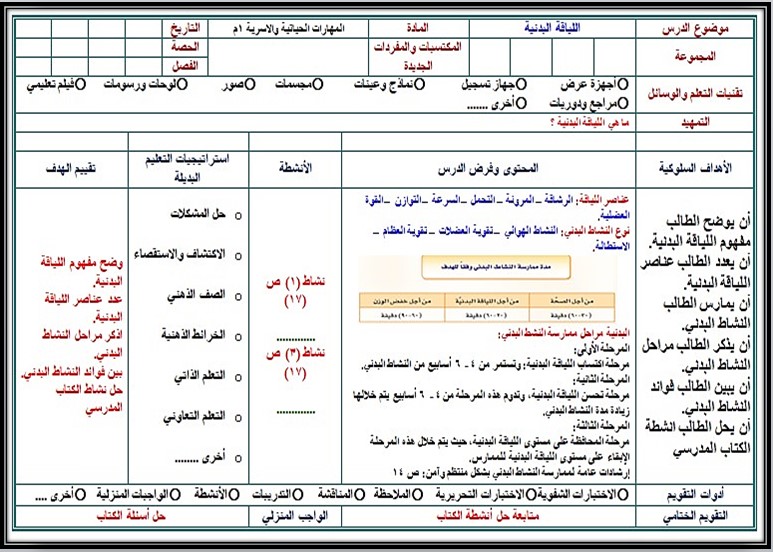 موضوع الدرس
اللياقة البدنية
المادة
المهارات الحياتية والاسرية ١م
التاريخ
المجموعة
المكتسبات والمفردات الجديدة
الحصة
الفصل
تقنيات التعلم والوسائل
Oاجهزة عرض Oجهاز تسجيل Oنماذج وعينات Oمجسمات Oصور Oلوحات ورسومات Oفيلم تعليمي
Oمراجع ودوريات Oأخرى .......
التمهيد
ما هي اللياقة البدنية ؟
الأهداف السلوكية
المحتوى وفرض الدرس
الأنشطة
استراتيجيات التعليم البديلة
تقييم الهدف
أن يوضح الطالب
مفهوم اللياقة البدنية.
أن يعدد الطالب عناصر
اللياقة البدنية.
أن يمارس الطالب
النشاط البدني.
أن يذكر الطالب مراحل
النشاط البدني.
أن يبين الطالب فوائد
النشاط البدني.
أن يحل الطالب انشطة
الكتاب المدرسي
عناصر اللياقة: الرشاقة – المرونة – التحمل – السرعة – التوازن – القوة
العضلية.
نوع النشاط البدني: النشاط الهوائي – تقوية العضلات – تقوية العظام –
الاستطالة.
مدة ممارسة النشاط البدني وفقاً للهدف
من أجل الصحة
من أجل اللياقة البدنية
من أجل خفض الوزن
دقيقة
دقيقة
دقيقة
البدنية مراحل ممارسة النشط البدني:
المرحلة الأولى:
مرحلة اكتساب اللياقة البدنية: وتستمر من ٤ - ٦ أسابيع من النشاط البدني.
المرحلة الثانية:
مرحلة تحسن اللياقة البدنية، وتدوم هذه المرحلة من ٤ - ٦ أسابيع يتم خلالها
زيادة مدة النشاط البدني.
المرحلة الثالثة:
مرحلة المحافظة على مستوى اللياقة البدنية، حيث يتم خلال هذه المرحلة
الإبقاء على مستوى اللياقة البدنية للممارس.
إرشادات عامة لممارسة النشاط البدني بشكل منتظم وآمن: ص ١٤
نشاط (١) ص
(١٧)
.............
نشاط ص
(١٧)
.............
o حل المشكلات
o الاكتشاف والاستقصاء
o الصف الذهني
o الخرائط الذهنية
o التعلم الذاتي
o التعلم التعاوني
o أخرى ........
وضح مفهوم اللياقة
البدنية.
عدد عناصر اللياقة
البدنية.
اذكر مراحل النشاط
البدني.
بين فوائد النشاط البدني.
حل نشاط الكتاب
المدرسي
أدوات التقويم
Oالاختبارات الشفوية Oالاختبارات التحريرية Oالملاحظة Oالمناقشة Oالتدريبات Oالأنشطة Oالواجبات المنزلية Oأخرى ....
التقويم الختامي
متابعة حل أنشطة الكتاب
الواجب المنزلي
حل أسئلة الكتاب